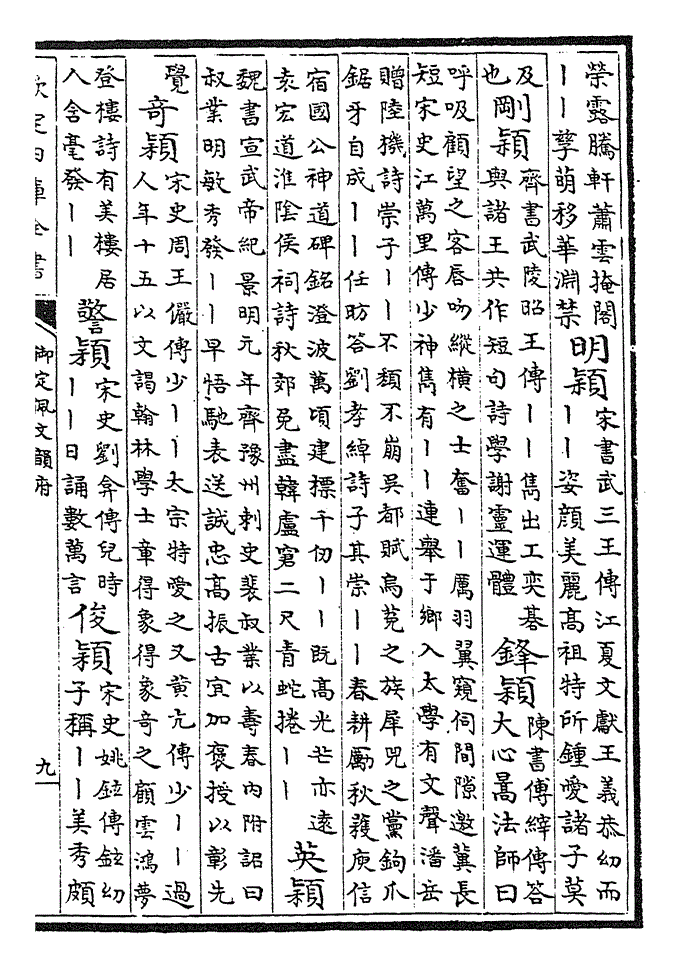 榮露騰軒蕭雲掩閣
丨丨孳萌移華淵禁
明穎
宋書武三王傳江夏文獻王義恭幼而
丨丨姿顔美麗高祖特所鍾愛諸子莫
及
也
剛穎
齊書武陵昭王傳丨丨雋出工奕碁
與諸王共作短句詩學謝靈運體
鋒穎
陳書傅縡傳答
大心暠法師曰
呼吸顧望之客脣吻縱橫之士奮丨丨厲羽翼窺伺間隙邀冀長
短宋史江萬里傳少神雋有丨丨連舉于鄉入太學有文聲潘岳
贈陸機詩崇子丨丨不頹不崩吳都賦烏菟之族犀兕之黨鉤爪
鋸牙自成丨丨任昉答劉孝綽詩子其崇丨丨春耕勵秋穫庾信
宿國公神道碑銘澄波萬頃建標千仞丨丨既高光芒亦遠
袁宏道淮隂侯祠詩秋郊兔盡韓盧窘二尺青蛇捲丨丨
英穎
魏書宣武帝紀景明元年齊豫州刺史裴叔業以壽春内附詔曰
叔業明敏秀發丨丨早悟馳表送誠忠高振古宜加褒授以彰先
覺
奇穎
宋史周王儼傳少丨丨太宗特愛之又黄亢傳少丨丨過
人年十五以文謁翰林學士章得象得象奇之顧雲鴻夢
登樓詩有美樓居
入含毫發丨丨
警穎
宋史劉弇傳兒時
丨丨日誦數萬言
俊穎
宋史姚鉉傳鉉幼
子稱丨丨美秀頗
欽定四庫全書
御定佩文韻府
九